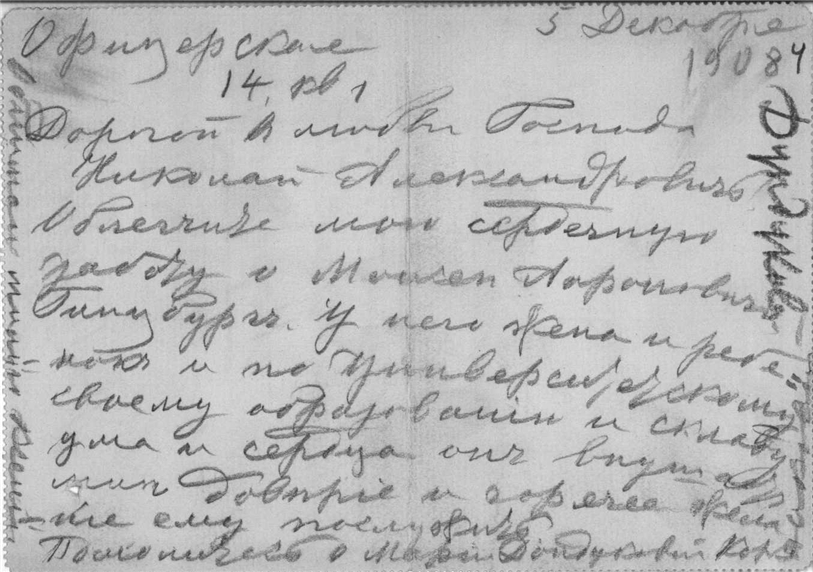 Офицерская
14, кв 1
5 Декабря
1908
Дорогой в любви Господа
Николай Александровичъ
Облегчите мою сердечную
заботу о Моисеѣ Ароновичѣ
Гинцбургъ. У него жена и ребе=
нокъ и по Университетскому
своему образованiи и складу
ума и сердца онъ внушаетъ
мнѣ довѣрiе и горячее жела=
нiе ему послужить
Помолитесь о Марiи Дондуковой Корс